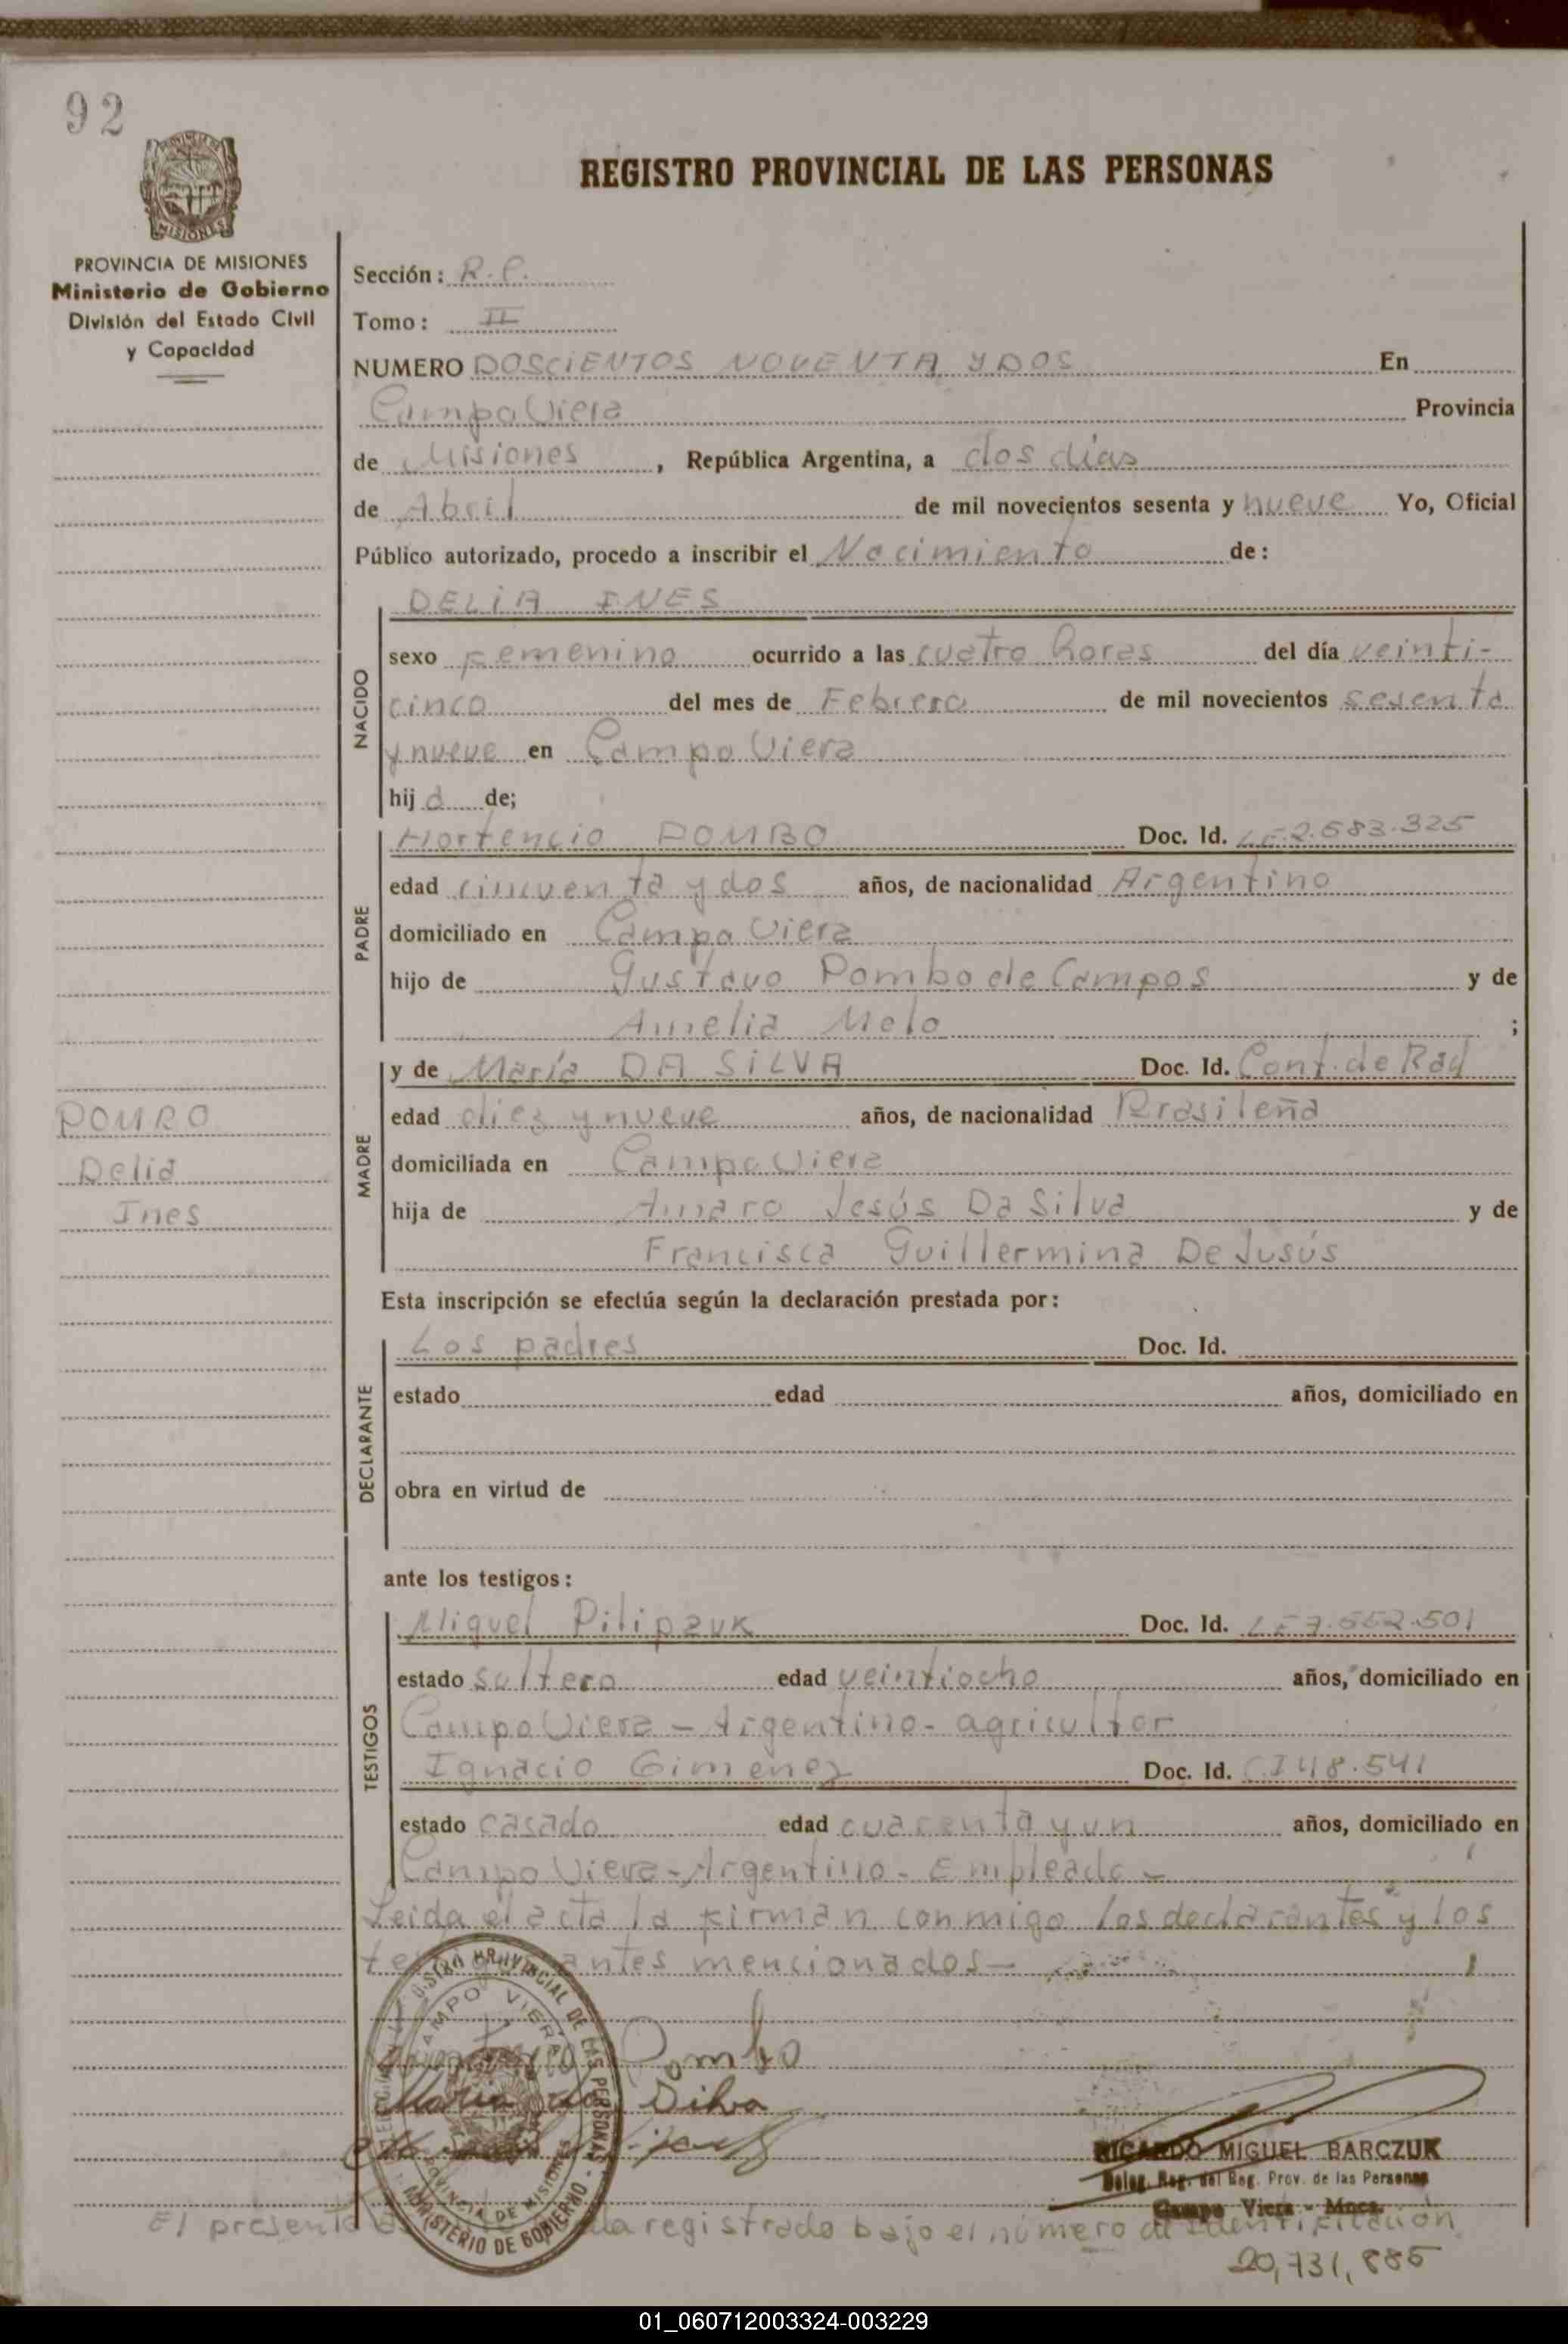 92
PROVINCIA DE MISIONES
Ministerio de Gobierno
División del Estado Civil
y Capacidad
REGISTRO PROVINCIAL DE LAS PERSONAS
Sección: R.P.
Tomo: II
NUMERO DOSCIENTOS NOVENTA Y DOS En
Campo Viera Provincia
de Misiones, República Argentina, a dos días
de Abril de mil novecientos sesenta y nueve Yo, Oficial
Público autorizado, procedo a inscribir el Nacimiento de:
NACIDO
DELIA INES
sexo Femenino ocurrido a las cuatro horas del día veinti-
cinco del mes de Febrero de mil novecientos sesenta
y nueve en Campo Viera
hija de;
PADRE
Hortencio POMBO Doc. Id. L.E. 2.583.325
edad cincuenta y dos años, de nacionalidad Argentino
domiciliado en Campo Viera
hijo de Gustavo Pombo de Campos y de
Amelia Melo ;
MADRE
y de María DA SILVA Doc. Id. Cont. de Rad
edad diez y nueve años, de nacionalidad Brasileña
domiciliada en Campo Viera
hija de Amaro Jesús Da Silva y de
Francisca Guillermina De Jusús
POMBO
Delia
Ines
Esta inscripción se efectúa según la declaración prestada por:
DECLARANTE
Los padres Doc. Id.
estado edad años, domiciliado en
obra en virtud de
ante los testigos:
TESTIGOS
Miguel Pilipzuk Doc. Id. L.E 7.552.501
estado soltero edad veintiocho años, domiciliado en
Campo Viera - Argentino - agricultor
Ignacio Gimenez Doc. Id. C.I 48.541
estado casado edad cuarenta y un años, domiciliado en
Campo Viera - Argentino - Empleado -
Leida el acta la firman conmigo los declarantes y los
antes mencionados -
REGISTRO PROVINCIAL DE LAS PERSONAS
CAMPO VIERA
PROVINCIA DE MISIONES
MINISTERIO DE GOBIERNO
Pombo
Maria da Silva
RICARDO MIGUEL BARCZUK
Deleg. Reg. del Reg. Prov. de las Personas
Campo Viera - Mnes.
El presente registrado bajo el número de Identificación
20,731,885
01_060712003324-003229